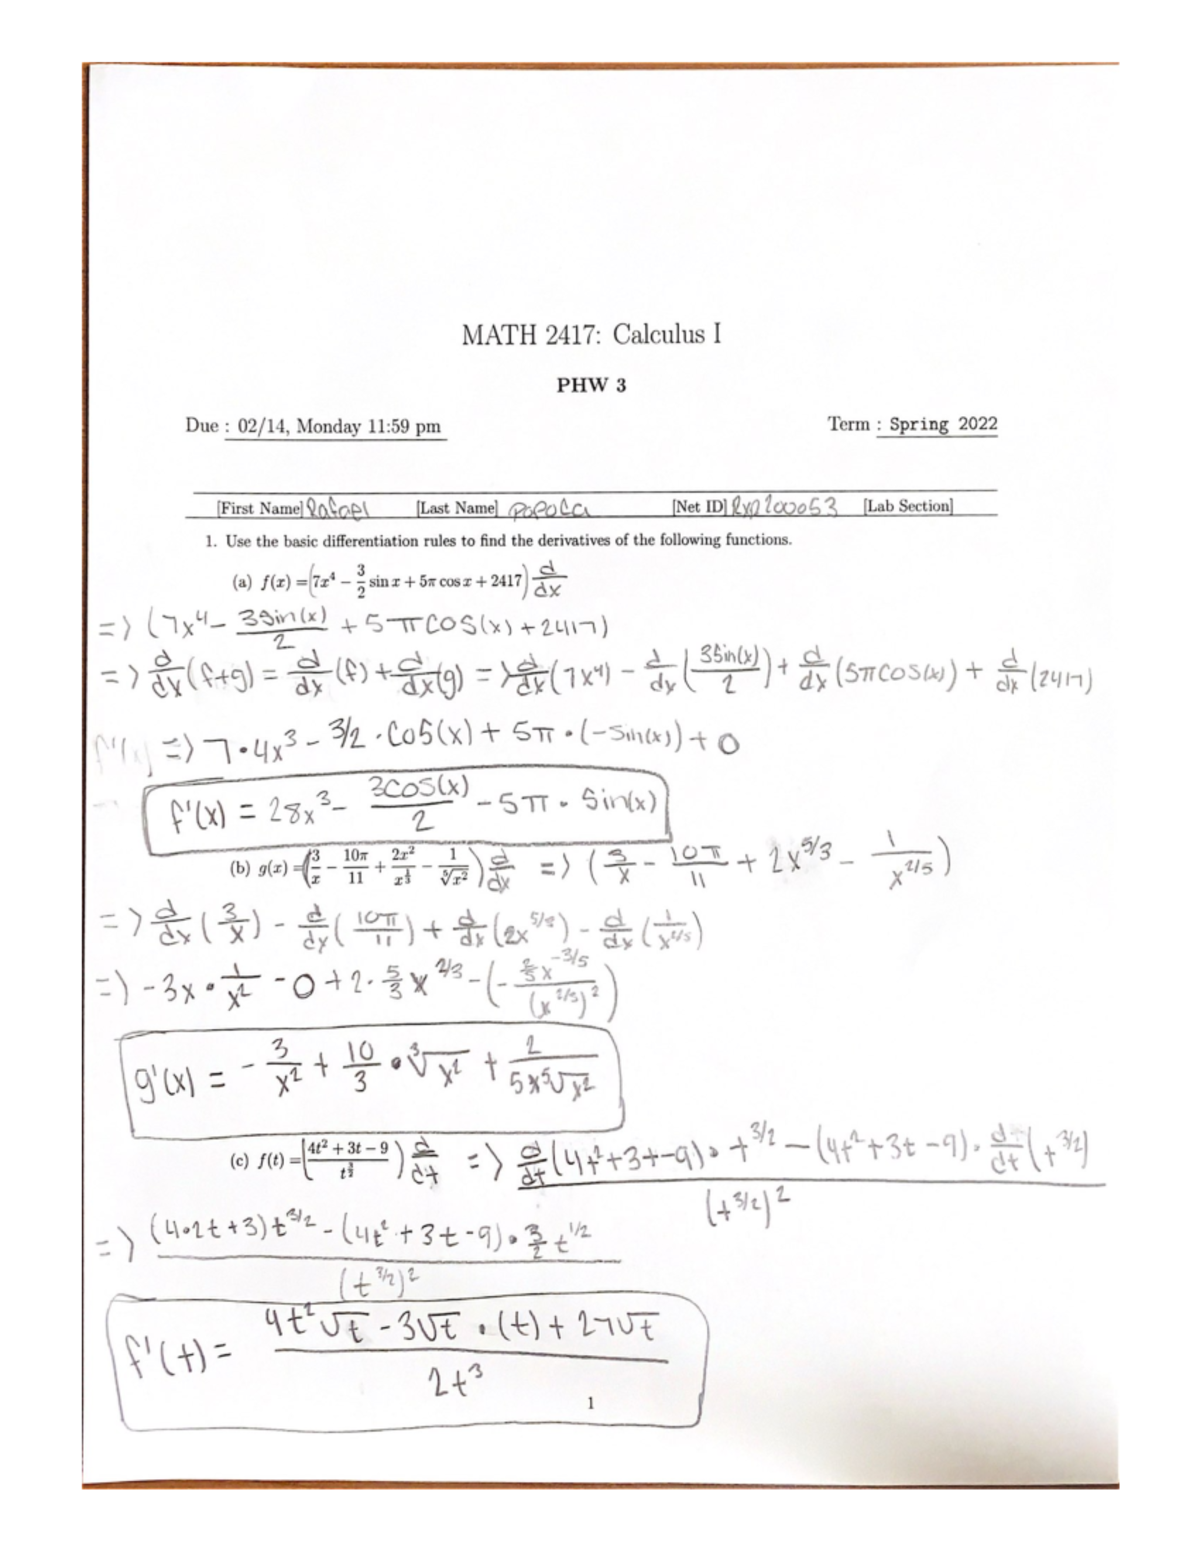 MATH 2417: Calculus I
PHW 3
Due : 02/14, Monday 11:59 pm Term : Spring 2022
[First Name] Rafael [Last Name] POPOCA [Net ID] RXP200053 [Lab Section]
1. Use the basic differentiation rules to find the derivatives of the following functions.
(a) f(x) = (7x⁴ − 3/2 sin x + 5π cos x + 2417) d/dx
=> (7x⁴ - 3sin(x)/2 + 5πcos(x) + 2417)
=> d/dx (f+g) = d/dx (f) + d/dx (g) => d/dx (7x⁴) - d/dx (3sin(x)/2) + d/dx (5πcos(x)) + d/dx (2417)
f'(x) => 7•4x³ - 3/2 • cos(x) + 5π • (-sin(x)) + 0
f'(x) = 28x³ - 3cos(x)/2 - 5π • sin(x)
(b) g(x) = (3/x − 10π/11 + 2x²/x^(1/3) − 1/⁵√x²) d/dx => (3/x - 10π/11 + 2x^(5/3) - 1/x^(2/5))
=> d/dx (3/x) - d/dx (10π/11) + d/dx (2x^(5/3)) - d/dx (1/x^(2/5))
=> -3x • 1/x² - 0 + 2 • 5/3 x^(2/3) - (- (2/5 x^(-3/5))/(x^(2/5))²)
g'(x) = - 3/x² + 10/3 • ³√x² + 2/(5x ⁵√x²)
(c) f(t) = (4t² + 3t − 9 / t^(3/2)) d/dt => (d/dt (4t²+3t-9) • t^(3/2) - (4t²+3t-9) • d/dt (t^(3/2))) / (t^(3/2))²
=> ((4•2t+3)t^(3/2) - (4t²+3t-9) • 3/2 t^(1/2)) / (t^(3/2))²
f'(t) = (4t²√t - 3√t • (t) + 27√t) / 2t³
1